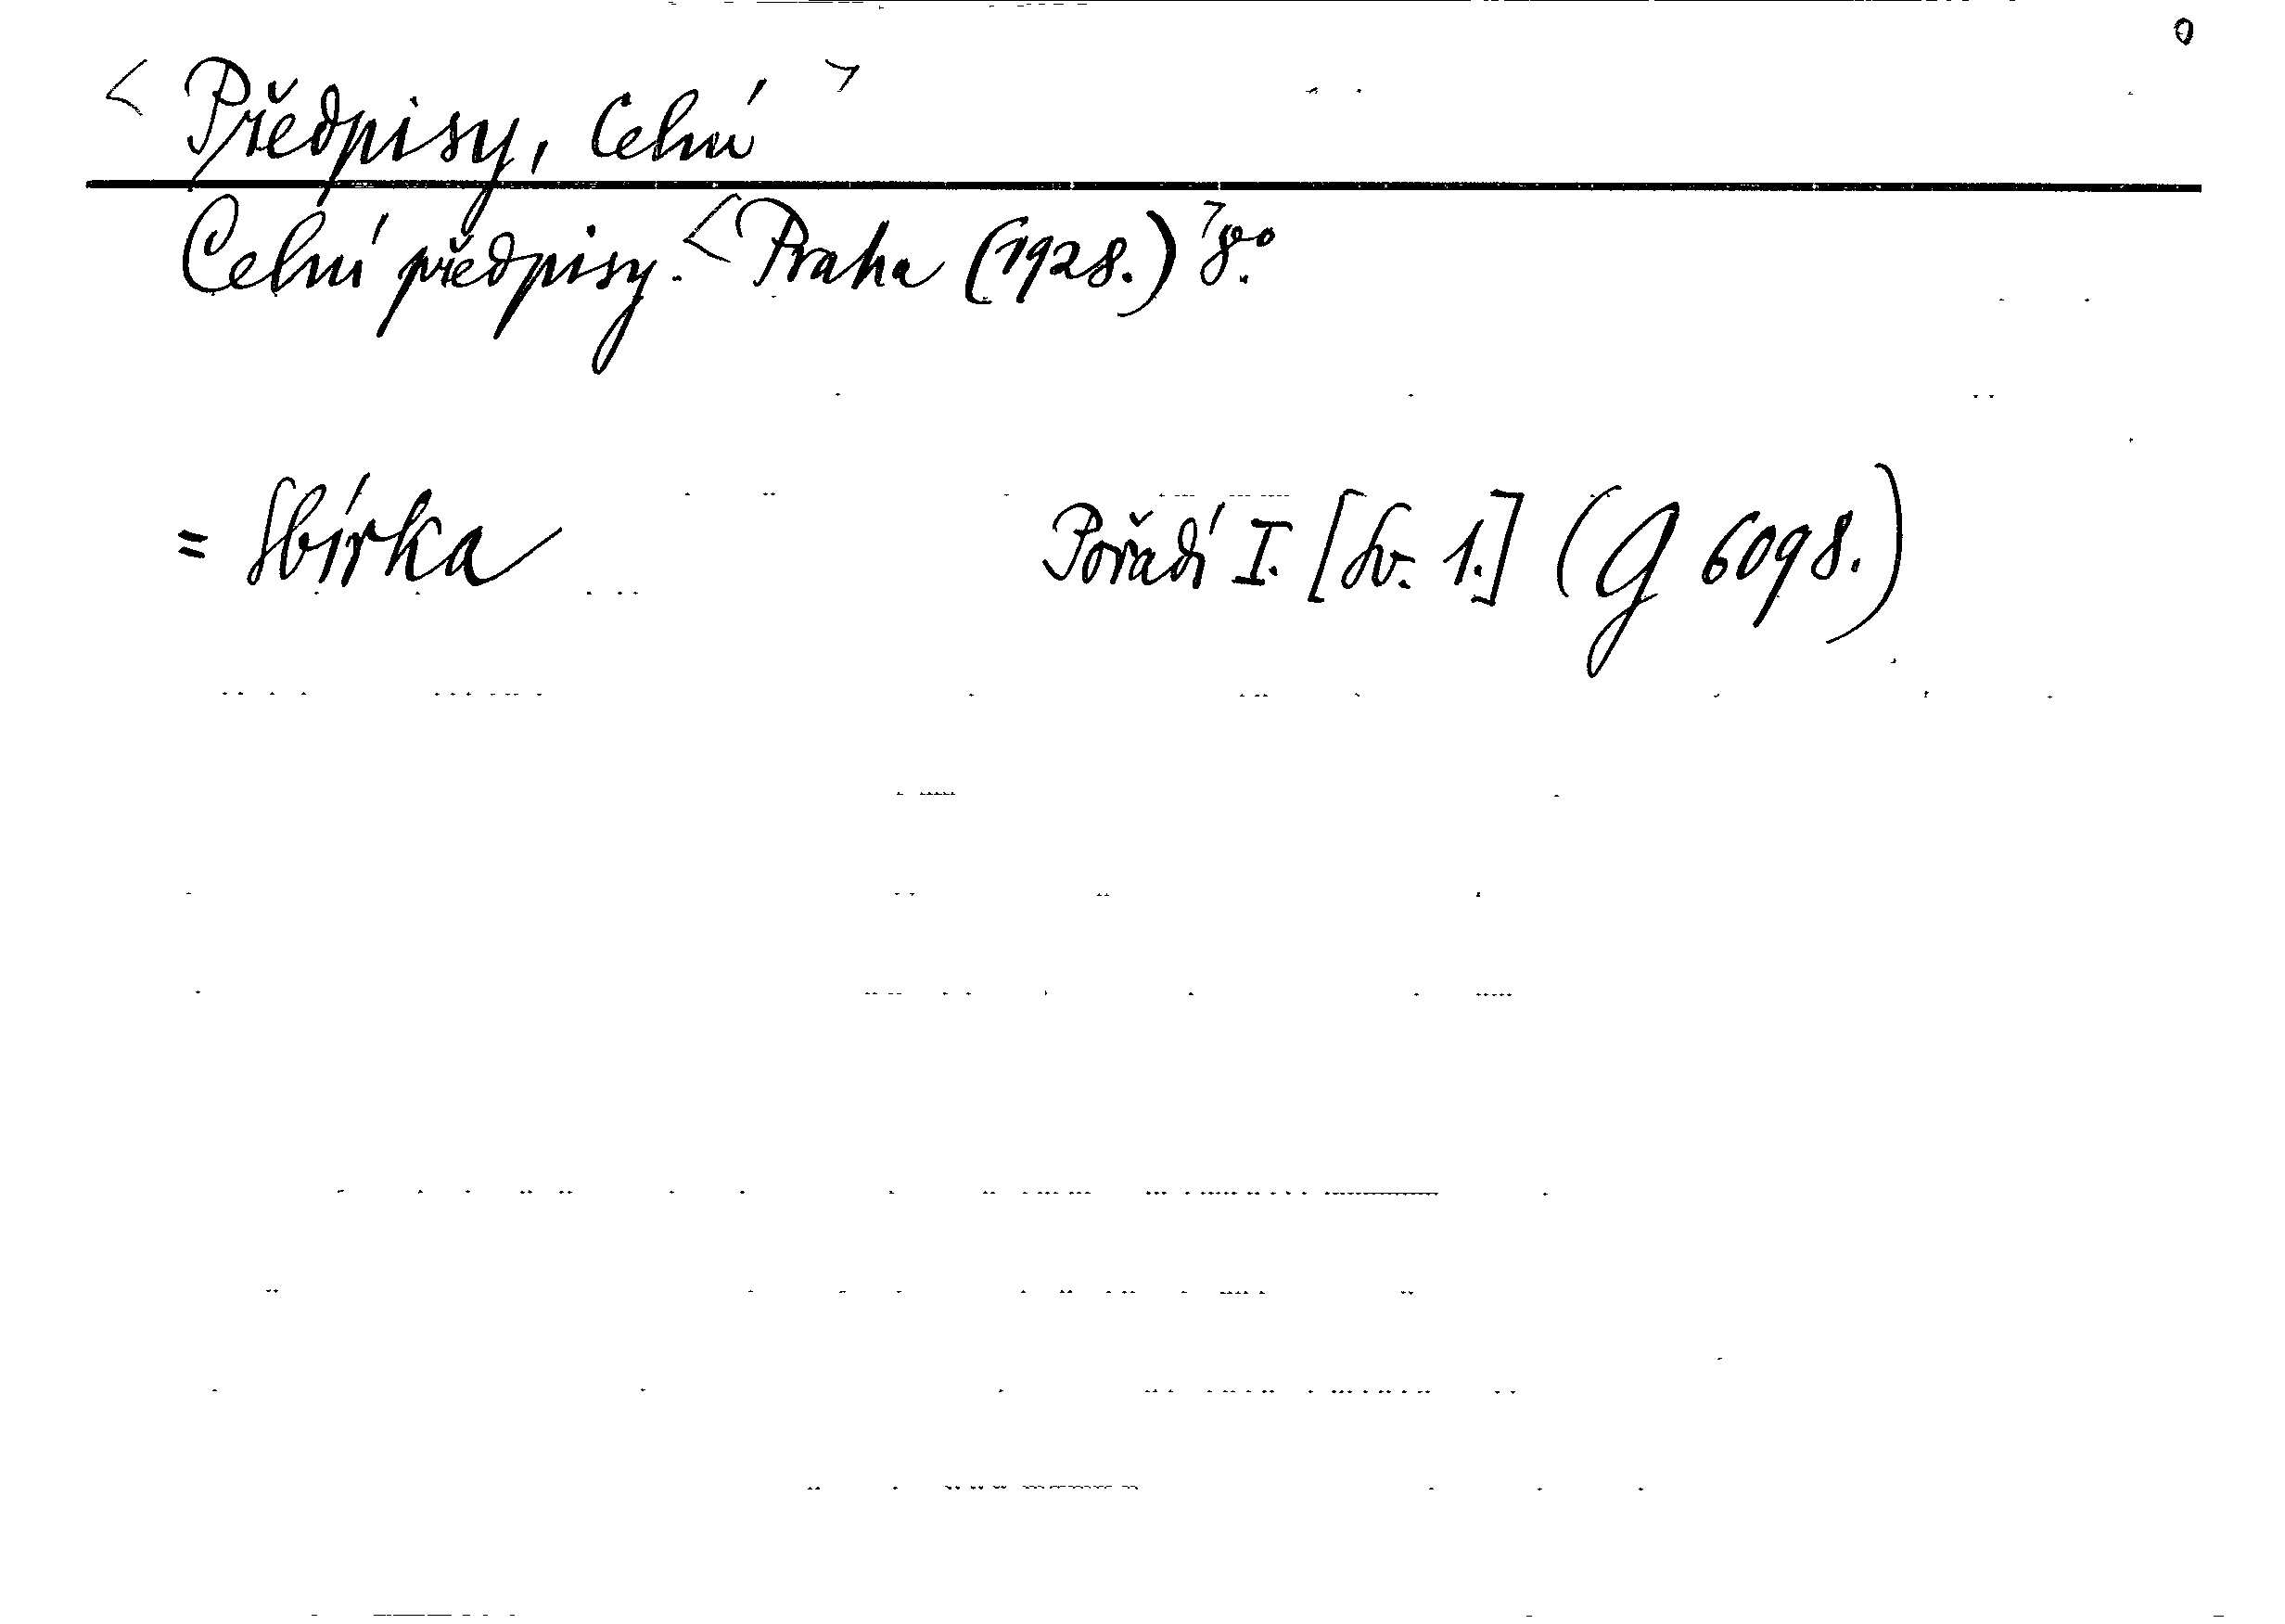 < Předpisy, Celní >
Celní předpisy. < Praha (1928.) > 8º.
= Sbírka Pořadí I. [Sv. 1.] (G 6098.)